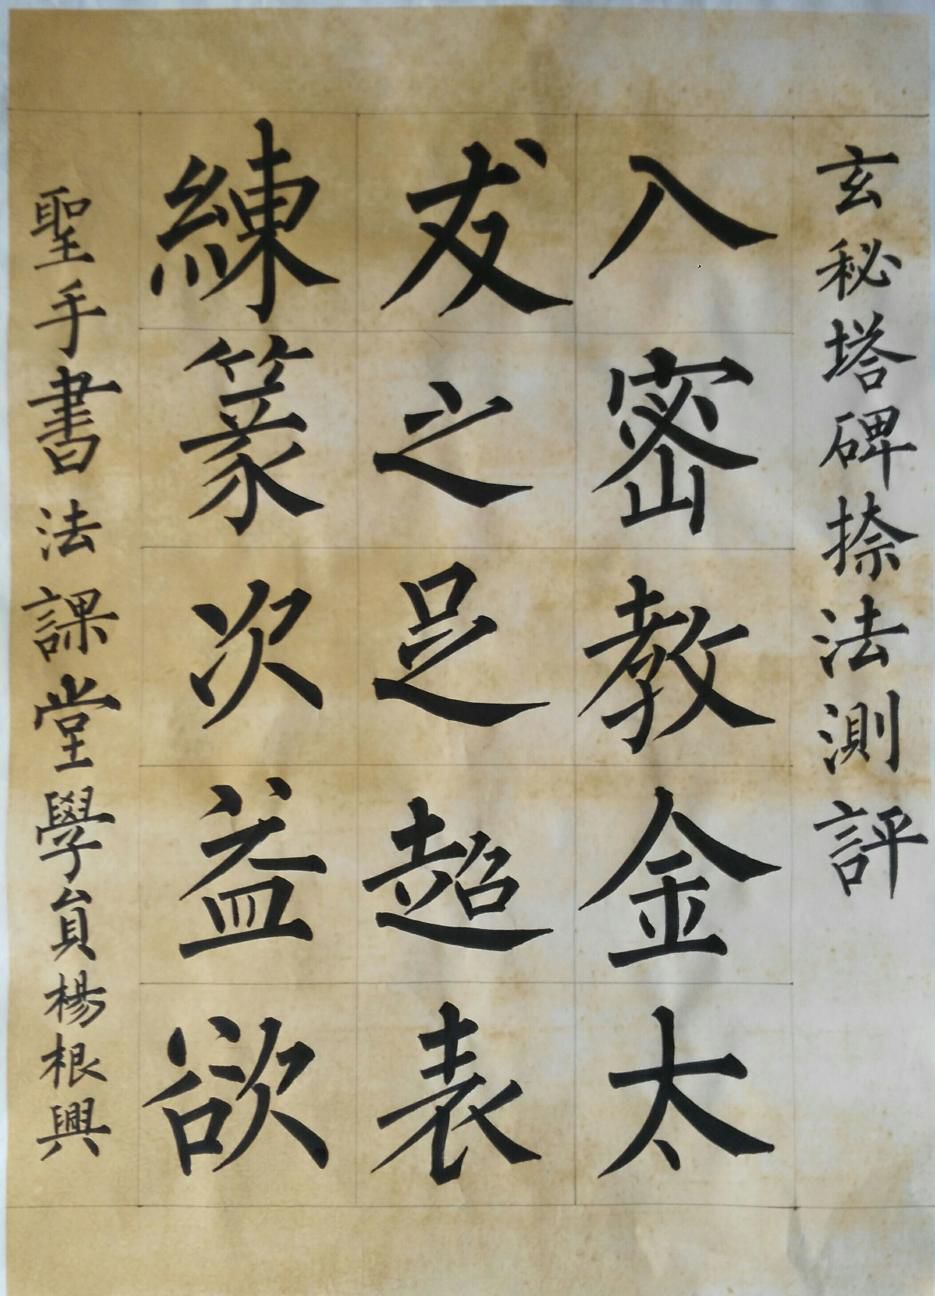 玄秘塔碑捺法測評
入密教金太
犮之足超表
練篆次益欲
聖手書法課堂學員楊根興